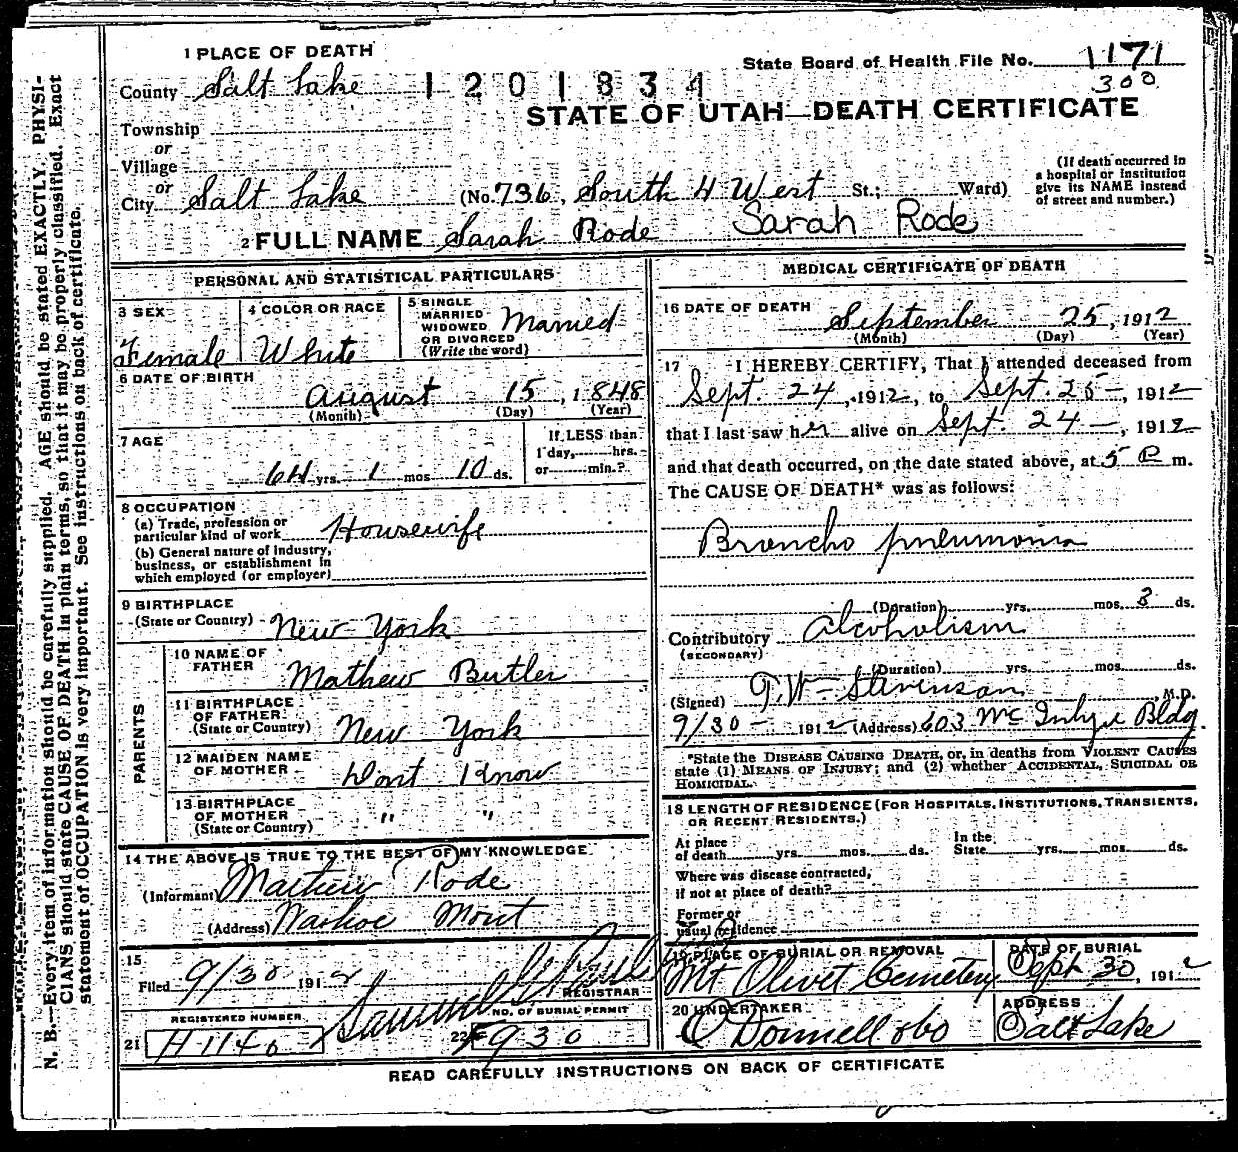 1 PLACE OF DEATH
State Board of Health File No. 1171
300
County Salt Lake 1201834
STATE OF UTAH—DEATH CERTIFICATE
Township
or
Village
or
City Salt Lake (No. 736, South 4 West St.; Ward)
(If death occurred in a hospital or institution give its NAME instead of street and number.)
2 FULL NAME Sarah Rode Sarah Rode
PERSONAL AND STATISTICAL PARTICULARS
3 SEX Female
4 COLOR OR RACE White
5 SINGLE MARRIED WIDOWED OR DIVORCED (Write the word) Married
6 DATE OF BIRTH August 15, 1848
(Month) (Day) (Year)
7 AGE 64 yrs. 1 mos. 10 ds.
If LESS than 1 day, hrs. or min.?
8 OCCUPATION
(a) Trade, profession or particular kind of work Housewife
(b) General nature of industry, business, or establishment in which employed (or employer)
9 BIRTHPLACE
(State or Country) New York
PARENTS
10 NAME OF FATHER Mathew Butler
11 BIRTHPLACE OF FATHER (State or Country) New York
12 MAIDEN NAME OF MOTHER Dont Know
13 BIRTHPLACE OF MOTHER (State or Country) " "
14 THE ABOVE IS TRUE TO THE BEST OF MY KNOWLEDGE
(Informant Mathew Rode
(Address) Washoe Mont
15
Filed 9/30 1912
REGISTRAR
REGISTERED NUMBER
NO. OF BURIAL PERMIT
21 H1146
22 F930
MEDICAL CERTIFICATE OF DEATH
16 DATE OF DEATH
September 25, 1912
(Month) (Day) (Year)
17 I HEREBY CERTIFY, That I attended deceased from
Sept. 24, 1912, to Sept. 25, 1912
that I last saw her alive on Sept. 24, 1912
and that death occurred, on the date stated above, at 5 P m.
The CAUSE OF DEATH* was as follows:
Broncho pneumonia
(Duration) yrs. mos. 3 ds.
Contributory Alcoholism
(SECONDARY)
(Duration) yrs. mos. ds.
(Signed) T.W. Stevenson, M.D.
9/30 1912 (Address) 603 McIntyre Bldg.
*State the DISEASE CAUSING DEATH, or, in deaths from VIOLENT CAUSES
state (1) MEANS OF INJURY; and (2) whether ACCIDENTAL, SUICIDAL OR
HOMICIDAL.
18 LENGTH OF RESIDENCE (FOR HOSPITALS, INSTITUTIONS, TRANSIENTS,
OR RECENT RESIDENTS.)
At place of death yrs. mos. ds. In the State yrs. mos. ds.
Where was disease contracted,
if not at place of death?
Former or
usual residence
19 PLACE OF BURIAL OR REMOVAL
Mt Olivet Cemetery
DATE OF BURIAL
Sept 30, 1912
20 UNDERTAKER
O'Donnell & Co
ADDRESS
Salt Lake
READ CAREFULLY INSTRUCTIONS ON BACK OF CERTIFICATE
N. B.—Every item of information should be carefully supplied. AGE should be stated EXACTLY. PHYSI-
CIANS should state CAUSE OF DEATH in plain terms, so that it may be properly classified. Exact
statement of OCCUPATION is very important. See instructions on back of certificate.